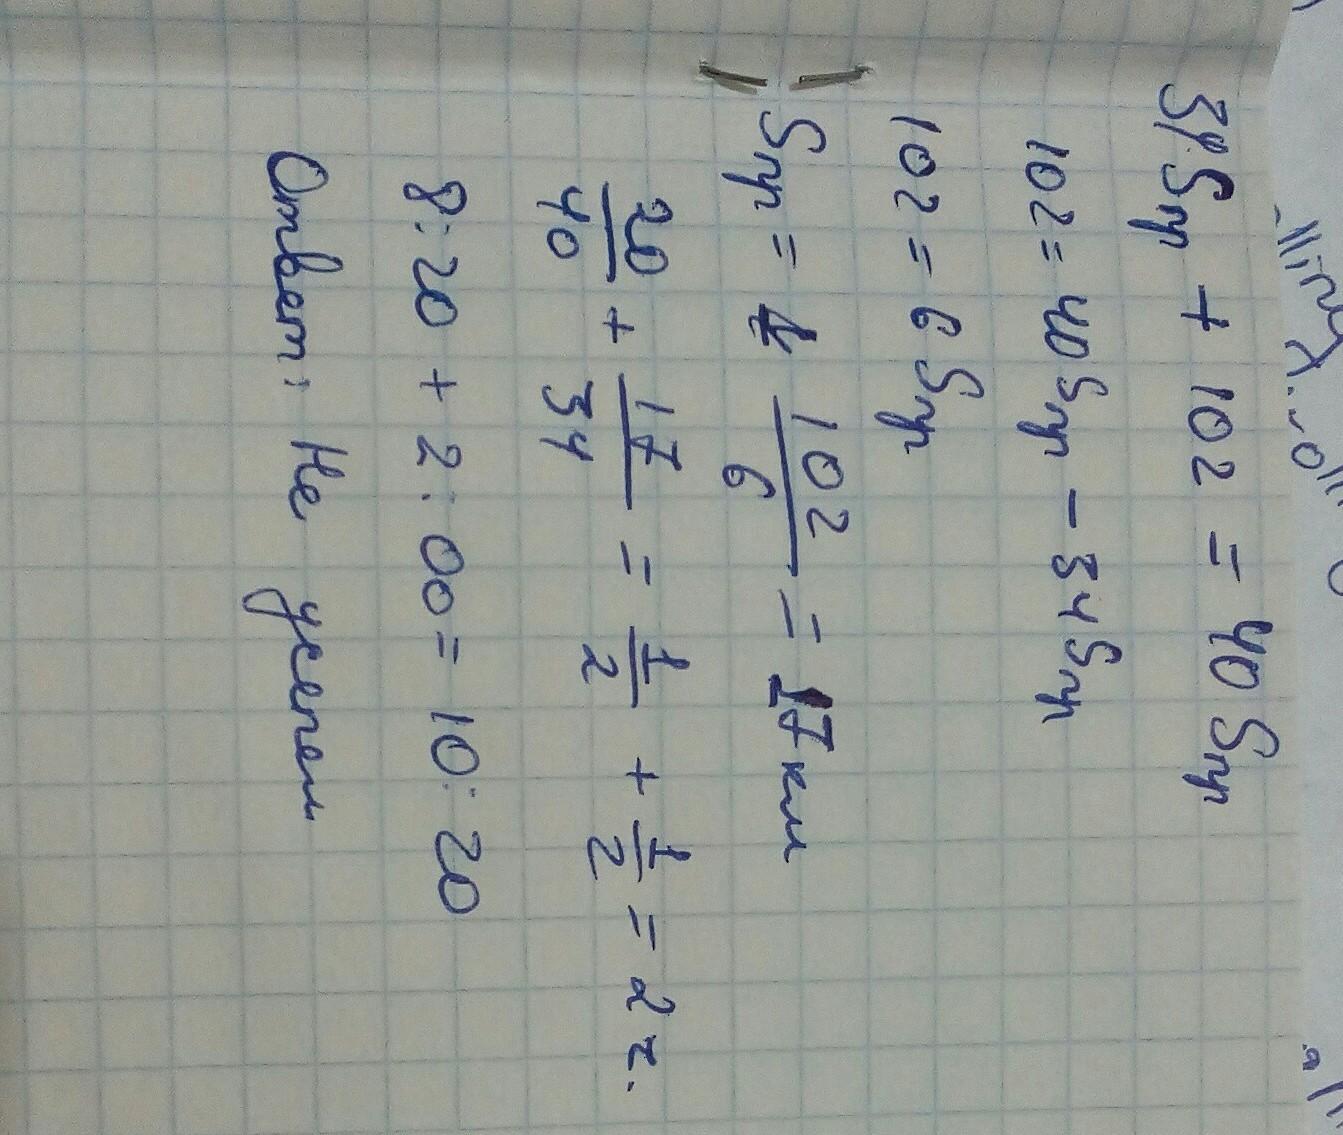 34Sуч + 102 = 40Sуч
102 = 40Sуч - 34Sуч
102 = 6Sуч
Sуч = 102/6 = 17км
20/40 + 17/34 = 1/2 + 1/2 = 2ч.
8:20 + 2:00 = 10:20
Ответ: Не успеем